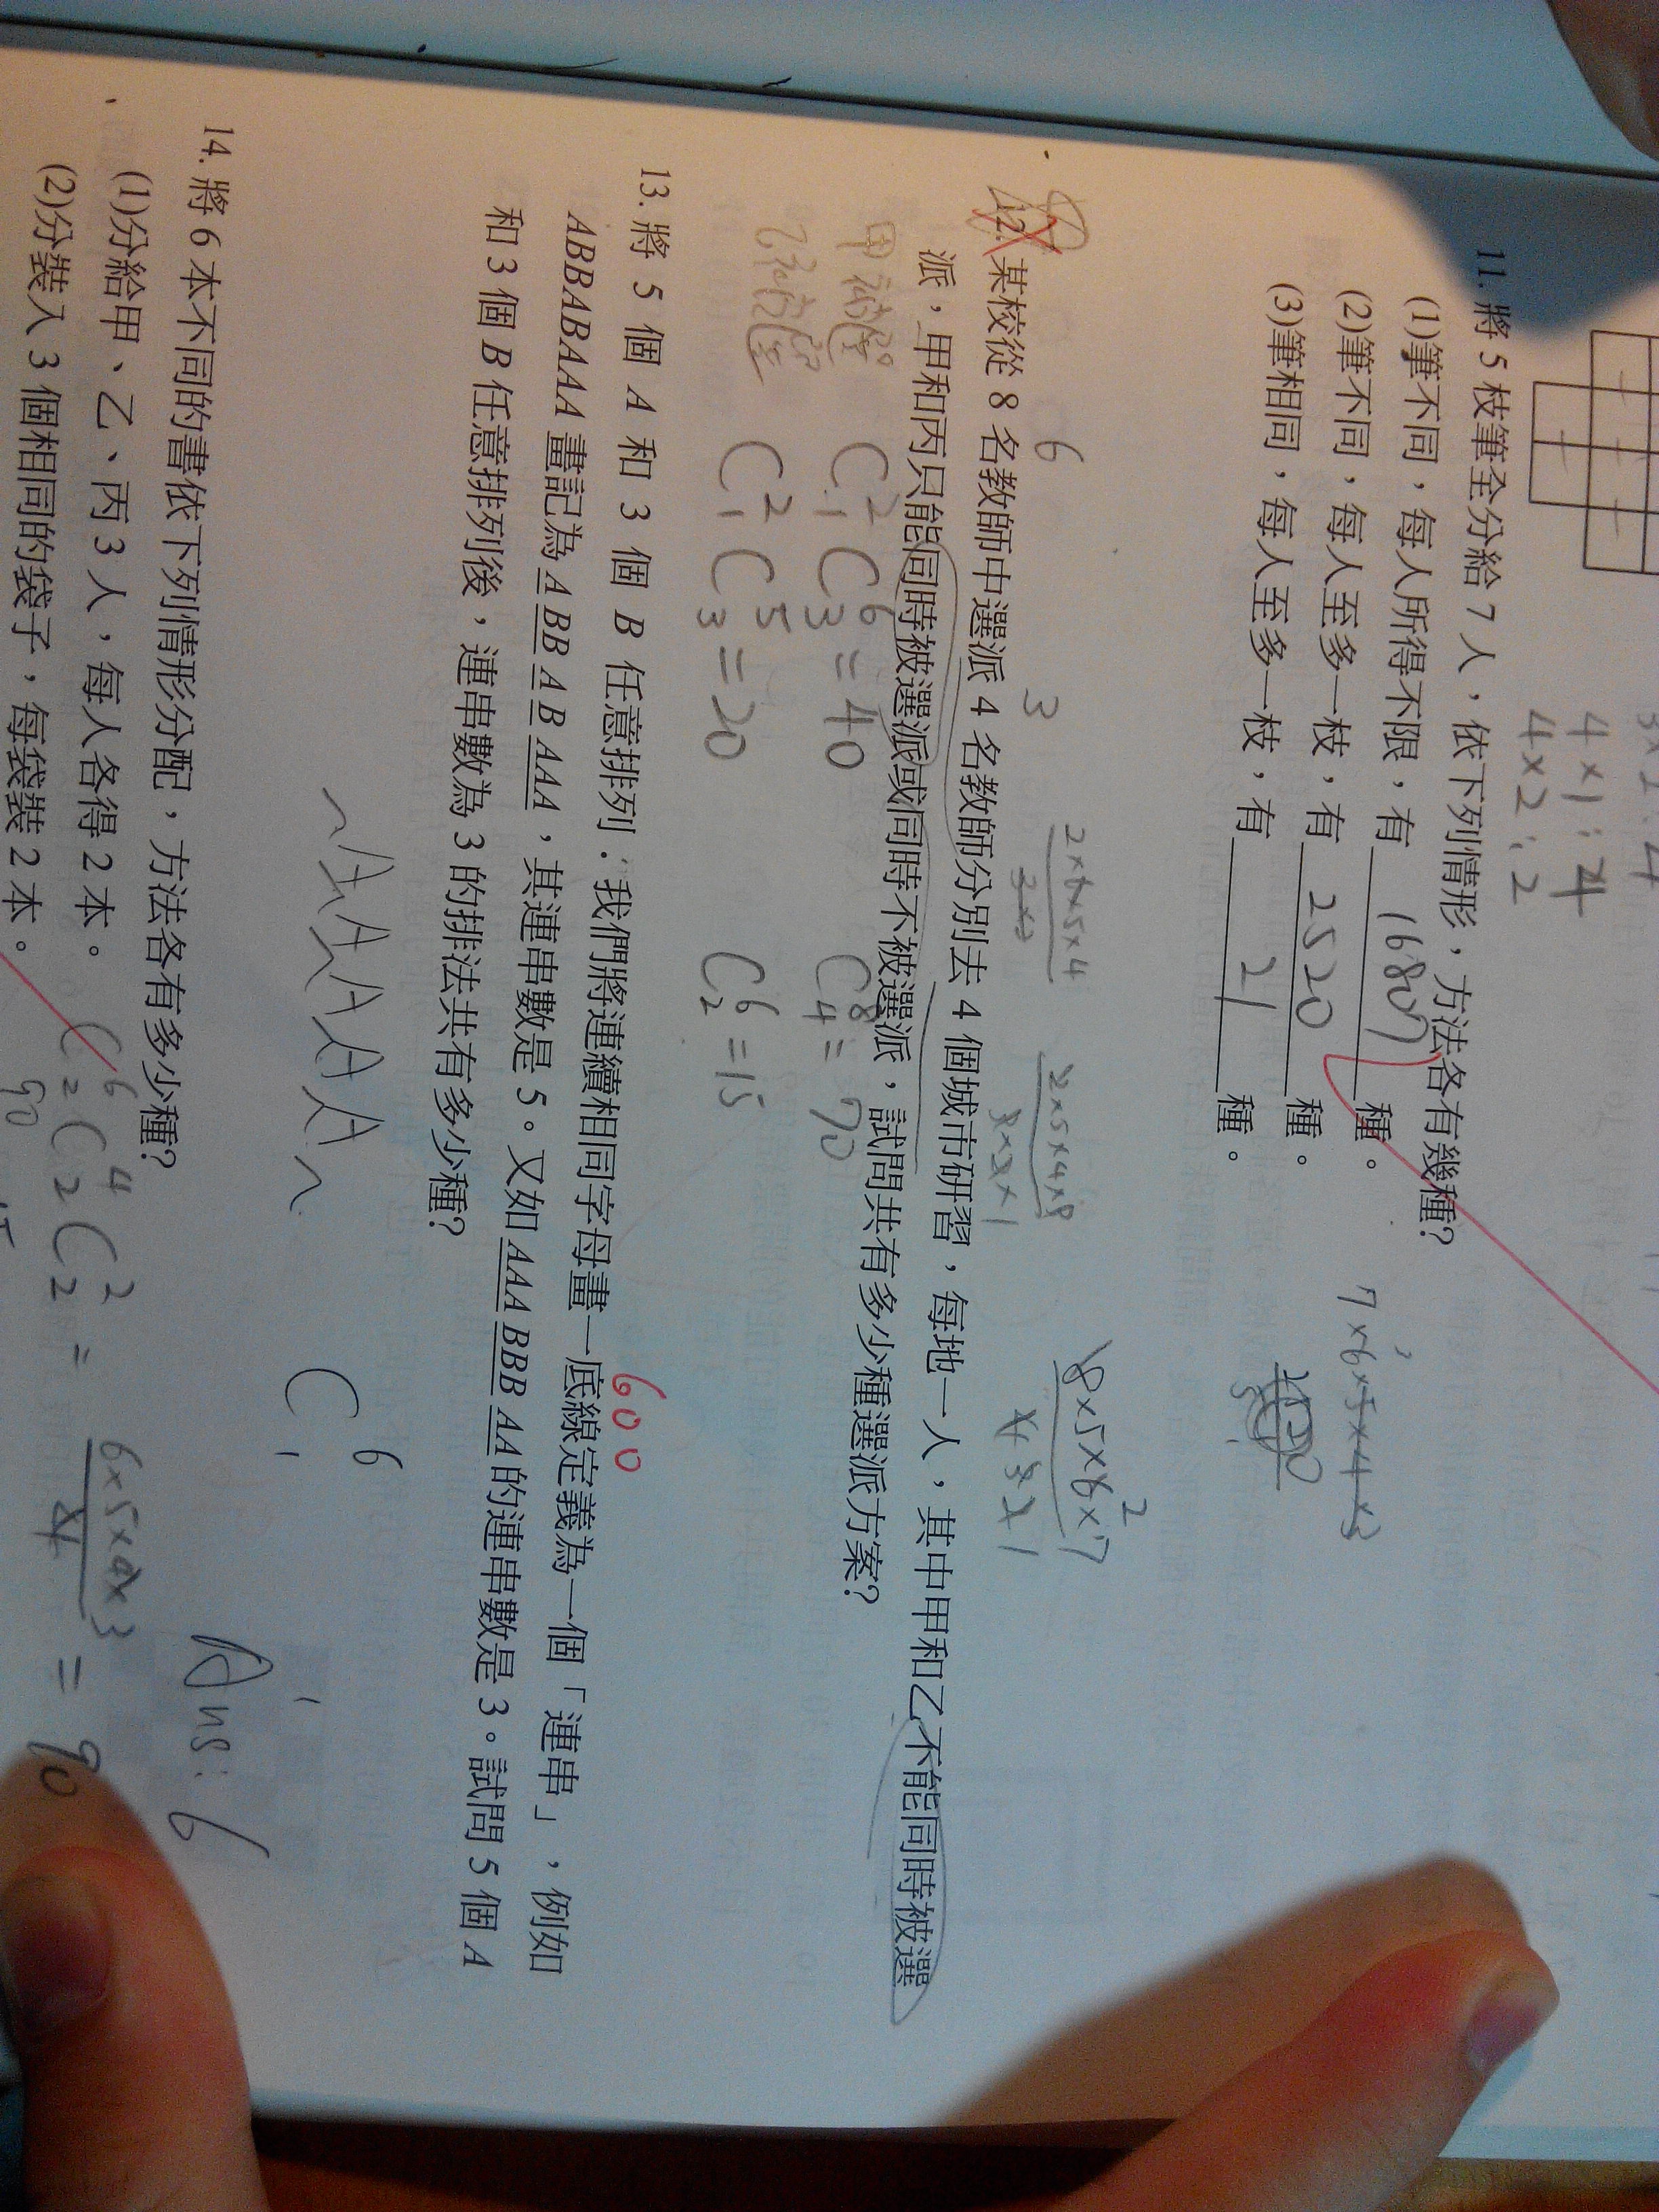 3×2:4
4×1:4
4×2:2
11. 將 5 枝筆全分給 7 人，依下列情形，方法各有幾種?
(1)筆不同，每人所得不限，有 16807 種。
(2)筆不同，每人至多一枝，有 2520 種。
(3)筆相同，每人至多一枝，有 21 種。
7×6×5×4×3
6
3
2×6×5×4
2×5×4×3
8×5×6×7
2
12. 某校從 8 名教師中選派 4 名教師分別去 4 個城市研習，每地一人，其中甲和乙不能同時被選
派，甲和丙只能同時被選派或同時不被選派，試問共有多少種選派方案?
甲被選 C²₁ C⁶₃ = 40 C⁸₄ = 70
C²₁ C⁵₃ = 20 C⁶₂ = 15
600
13. 將 5 個 A 和 3 個 B 任意排列．我們將連續相同字母畫一底線定義為一個「連串」，例如
ABBABAAA 畫記為 A BB A B AAA，其連串數是 5。又如 AAA BBB AA 的連串數是 3。試問 5 個 A
和 3 個 B 任意排列後，連串數為 3 的排法共有多少種?
A A A A A
C⁶₁
Ans: 6
14. 將 6 本不同的書依下列情形分配，方法各有多少種?
(1)分給甲、乙、丙 3 人，每人各得 2 本。
C⁶₂ C⁴₂ C²₂ = 6×5×4×3 / 4 = 90
(2)分裝入 3 個相同的袋子，每袋裝 2 本。
90